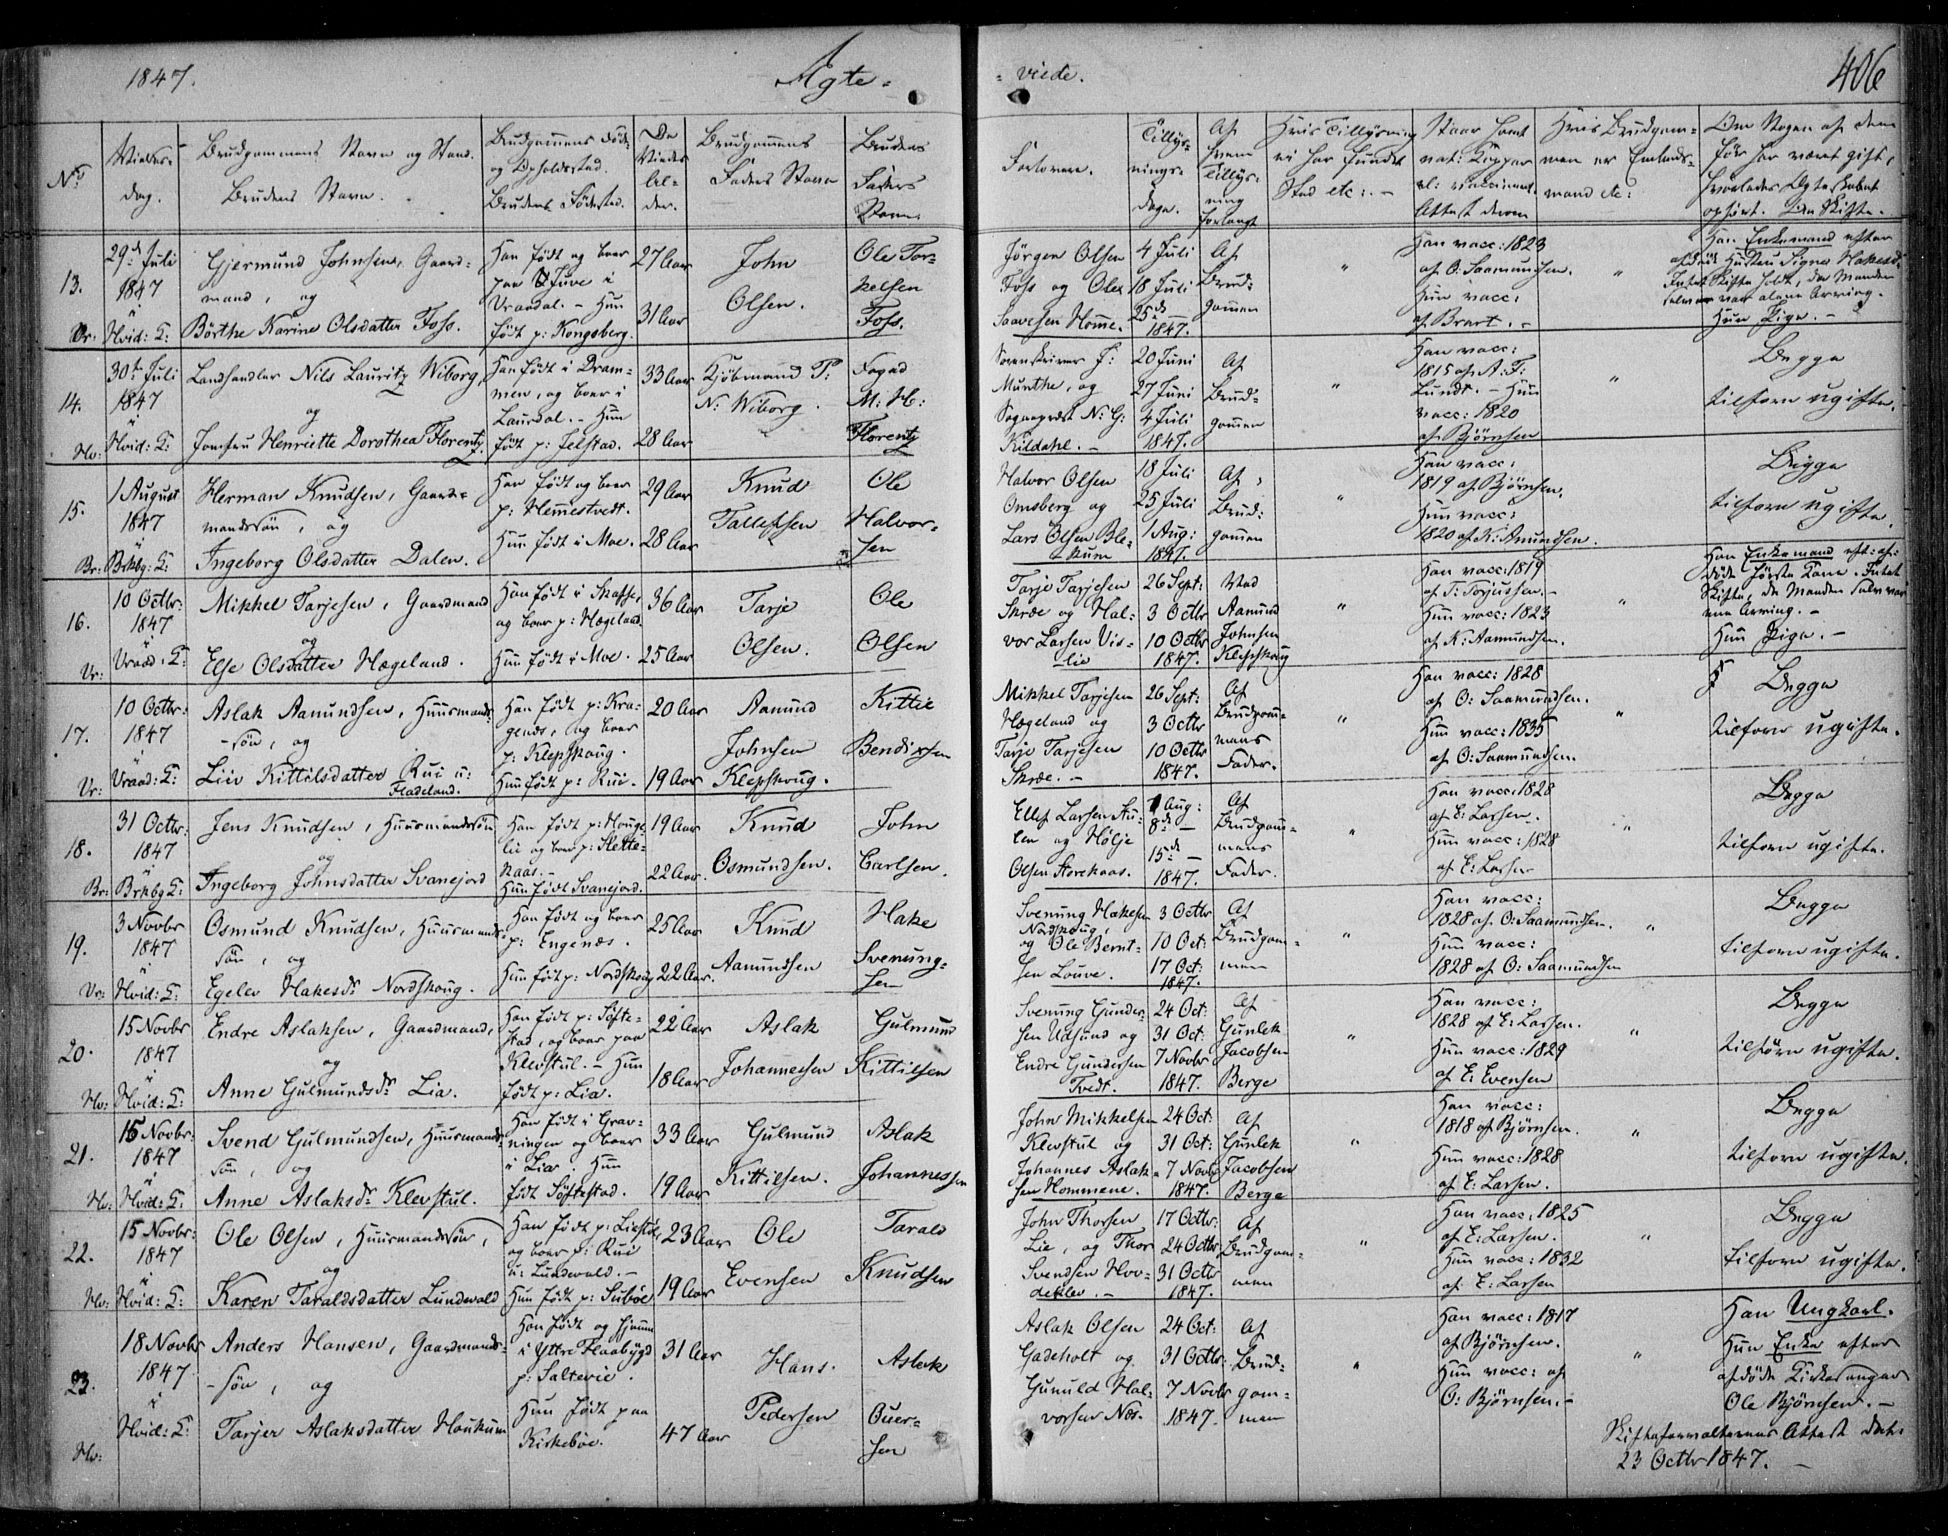 1847.
Ægte-
-viede.
406
No
Vielses-
dag.
Brudgommens Navn og Stand.
Brudens Navn.
Brudgommens Føde-
og Opholdssted.
Brudens Fødested.
De
Viedes
Al-
der.
Brudgommens
Faders Navn
Brudens
Faders
Navn.
Forlovere.
Tillys-
nings-
dage.
Af
hvem
Tillys-
ning
forlangt
Hvis Tillysning
ei har fundet
Sted etc:-
Hvis Brudgom-
men er Enleds-
mand etc:
Om Nogen af dem
før har været gift,
hvorledes Ægteskabet
ophørt. Om Skifte.-
13.
Vr:
29de Juli
1847
i
Hvid: K:
Gjermund Johnsen, Gaard-
mand, og
Børthe Karine Olsdatter Foss.
Han født og boer
paa Juve i
Vraadal.- Hun
født p: Kongsberg.
27 Aar
31 Aar
John
Olsen.
Ole Tor-
kelsen
Foss.
Jørgen Olsen
Foss og Ole
Saavesen Homme.
4 Juli
18 Juli
25de —
1847.
Af
Brud-
gommen
"
Han vacc: 1823
af O: Saamundsen.
Hun vacc:
af Brart.-
"
Han Enkemand efter
afdøde Hustru Signe Hakesd:
Intet Skifte holdt, da Manden
selv var alene Arving.-
Hun Pige.-
14.
Hv:
30te Juli
1847
i
Hvid: K:
Landhandler Nils Lauritz Wiborg,
og
Jomfru Henriette Dorothea Florentz.
Han født i Dram-
men, og boer i
Laurdal.- Hun
født p: Selstad.
33 Aar
28 Aar
Kjøbmand P:
N: Wiborg.
Foged
M: H:
Florentz
Sorenskriver J:
Munthe, og
Sogneprest N: G:
Kildahl.-
20 Juni
27 Juni
4 Juli
1847.
Af
Brud-
gommen
"
Han vacc:
1815 af A: F:
Lundt.- Hun
vacc: 1820
af Bjørnsen
"
Begge
tilforn ugifte.
15.
Br:
1 August
1847
i
Brkbg: K:
Herman Knudsen, Gaard-
mandssøn, og
Ingeborg Olsdatter Dalen.
Han født og boer
p: Hemestvedt.
Hun født i Moe.
29 Aar
28 Aar
Knud
Tallefsen
Ole
Halvor-
sen
Halvor Olsen
Omsberg og
Lars Olsen Ble-
kum
18 Juli
25 Juli
1 Aug:
1847.
Af
Brud-
gommen
"
Han vacc:
1819 af Bjørnsen.
Hun vacc:
1820 af K: Amundsen.
Begge
tilforn ugifte.
16.
Vr:
10 Octbr:
1847
i
Vraad: K:
Mikkel Tarjesen, Gaardmand
og
Else Olsdatter Hægeland.
Han født i Skafse,
og boer p: Hægeland.
Hun født i Moe.
36 Aar
25 Aar
Tarje
Olsen.
Ole
Olsen
Tarje Tarjesen
Skræe og Hal-
vor Larsen Vis-
lie
26 Sept:
3 Octbr
10 Octbr
1847.
Ved
Aamund
Johnsen
Klepskoug
"
Han vacc: 1819
af T: Torjussen.-
Hun vacc: 1823
af K: Aamundsen.
"
Han Enkemand eft: af-
døde første Kone. Intet
Skifte, da Manden selv var
ene Arving.-
Hun Pige.-
17.
Vr:
10 Octbr:
1847
i
Vraad: K:
Aslak Aamundsen, Huusmands-
-søn, og
Liv Kittilsdatter Rui u:
Fladeland.
Han født p: Kra-
genes, og boer
p: Klepskoug.
Hun født p: Rui.
20 Aar
19 Aar
Aamund
Johnsen
Klepskoug.
Kittil
Bendixsen
Mikkel Tarjesen
Hægeland og
Tarje Tarjesen
Skræe.-
26 Sept:
3 Octbr
10 Octbr
1847.
Af
Brudgom-
mens
Fader.
"
Han vacc: 1828
af O: Saamundsen.
Hun vacc: 1835
af O: Saamundsen.
"
Begge
tilforn ugifte.
18.
Br:
31 Octbr:
1847
i
Brkbg K:
Jens Knudsen, Huusmandssøn
og
Ingeborg Johnsdatter Svanejord
Han født p: Houge-
lie og boer p: Slette-
kaas.-
Hun født Svanejord.
19 Aar
22 Aar.
Knud
Osmundsen.
John
Carlsen.
Ellef Larsen Au-
len og Hølje
Olsen Storekaas.
1 Aug:
8de —
15de —
1847.
Af
Brudgom-
mens
Fader.
"
Han vacc: 1828
af E: Larsen.
Hun vacc: 1828
af E: Larsen
"
Begge
tilforn ugifte.
19.
Vr:
3 Novbr
1847
i
Hvid: K:
Osmund Knudsen, Huusmands-
søn, og
Egelev Hakesdr Nordskoug.
Han født og boer
p: Engenæs.
Hun født p: Nordskoug
25 Aar
22 Aar.
Knud
Aamundsen
Hake
Svenung-
sen
Svenung Hakesen
Nordskoug,
og Ole Bernt-
sen Louve.
3 Octbr
10 Oct:
17 Oct:
1847.
Af
Brudgom-
men
"
Han vacc:
1828 af O: Saamundsen.
Hun vacc:
1828 af O: Saamundsen
"
Begge
tilforn ugifte.
20.
Hv:
15 Novbr
1847
i
Hvid: K:
Endre Aslaksen, Gaardmand,
og
Anne Gulmundsdr Lia.
Han født p: Søfte-
stad, og boer paa
Klevstul.- Hun
født p: Lia.
22 Aar
18 Aar
Aslak
Johannesen
Gulmund
Kittilsen
Svenung Gunder-
sen Udsund og
Endre Gundersen
Tvedt.
24 Oct:
31 Oct:
7 Novbr
1847.
Af
Gunlek
Jacobsen
Berge
"
Han vacc:
1828 af E: Larsen.
Hun vacc: 1829
af E: Evensen
"
Begge
tilførn ugifte.
21.
Hv:
15 Novbr:
1847
i
Hvid: K:
Svend Gulmundsen, Huusmands-
søn, og
Anne Aslaksdr Klevstul.
Han født i Grav-
ningen og boer
i Lia. Hun
født Søftestad.
33 Aar
19 Aar
Gulmund
Kittilsen.
Aslak
Johannessen
John Mikkelsen
Klevstul og
Johannes Aslak-
sen Hommene.
24 Oct:
31 Oct:
7 Novbr
1847.
Af
Gunlek
Jacobsen
Berge
"
Han vacc:
1818 af Bjørnsen.
Hun vacc: 1828
af E: Larsen.
"
Begge
tilforn ugifte.
22.
Hv:
15 Novbr:
1847
i
Hvid: K:
Ole Olsen, Huusmandssøn,
og
Karen Taraldsdatter Lundevald
Han født p: Liestøl,
og boer p: Rui
u: Lundevald.-
Hun født p: Subøe
23 Aar
19 Aar
Ole
Evensen
Tarald
Knudsen
John Thorsen
Lie, og Thor
Svendsen Hov-
deklev.-
17 Octbr:
24 Octbr
31 Octbr
1847.
Af
Brudgom-
men
"
Han vacc: 1825
af E: Larsen.
Hun vacc: 1832
af E: Larsen
"
Begge
tilforn ugifte.
23.
Hv:
18 Novbr
1847
i
Hvid: K:
Anders Hansen, Gaardmands-
-søn, og
Tarjer Aslaksdatter Houkum
Han født og hjemme
i Yttre Flaabygd
p: Saltevie.
Hun født paa
Kirkebøe.
31 Aar
47 Aar
Hans.
Pedersen
Aslak
Over-
sen
Aslak Olsen
Gadeholt og
Gunuld Hal-
vorsen Næs.
24 Oct:
31 Octbr:
7 Novbr
1847.
Af
Brud-
gom-
men
"
Han vacc: 1817
af Bjørnsen.
Hun vacc: af
O: Bjørnsen.-
"
Han Ungkarl.
Hun Enke efter
afdøde Kirkesanger
Ole Bjørnsen.-
Skifteforvalterens Attest dat:
23 Octbr 1847.-